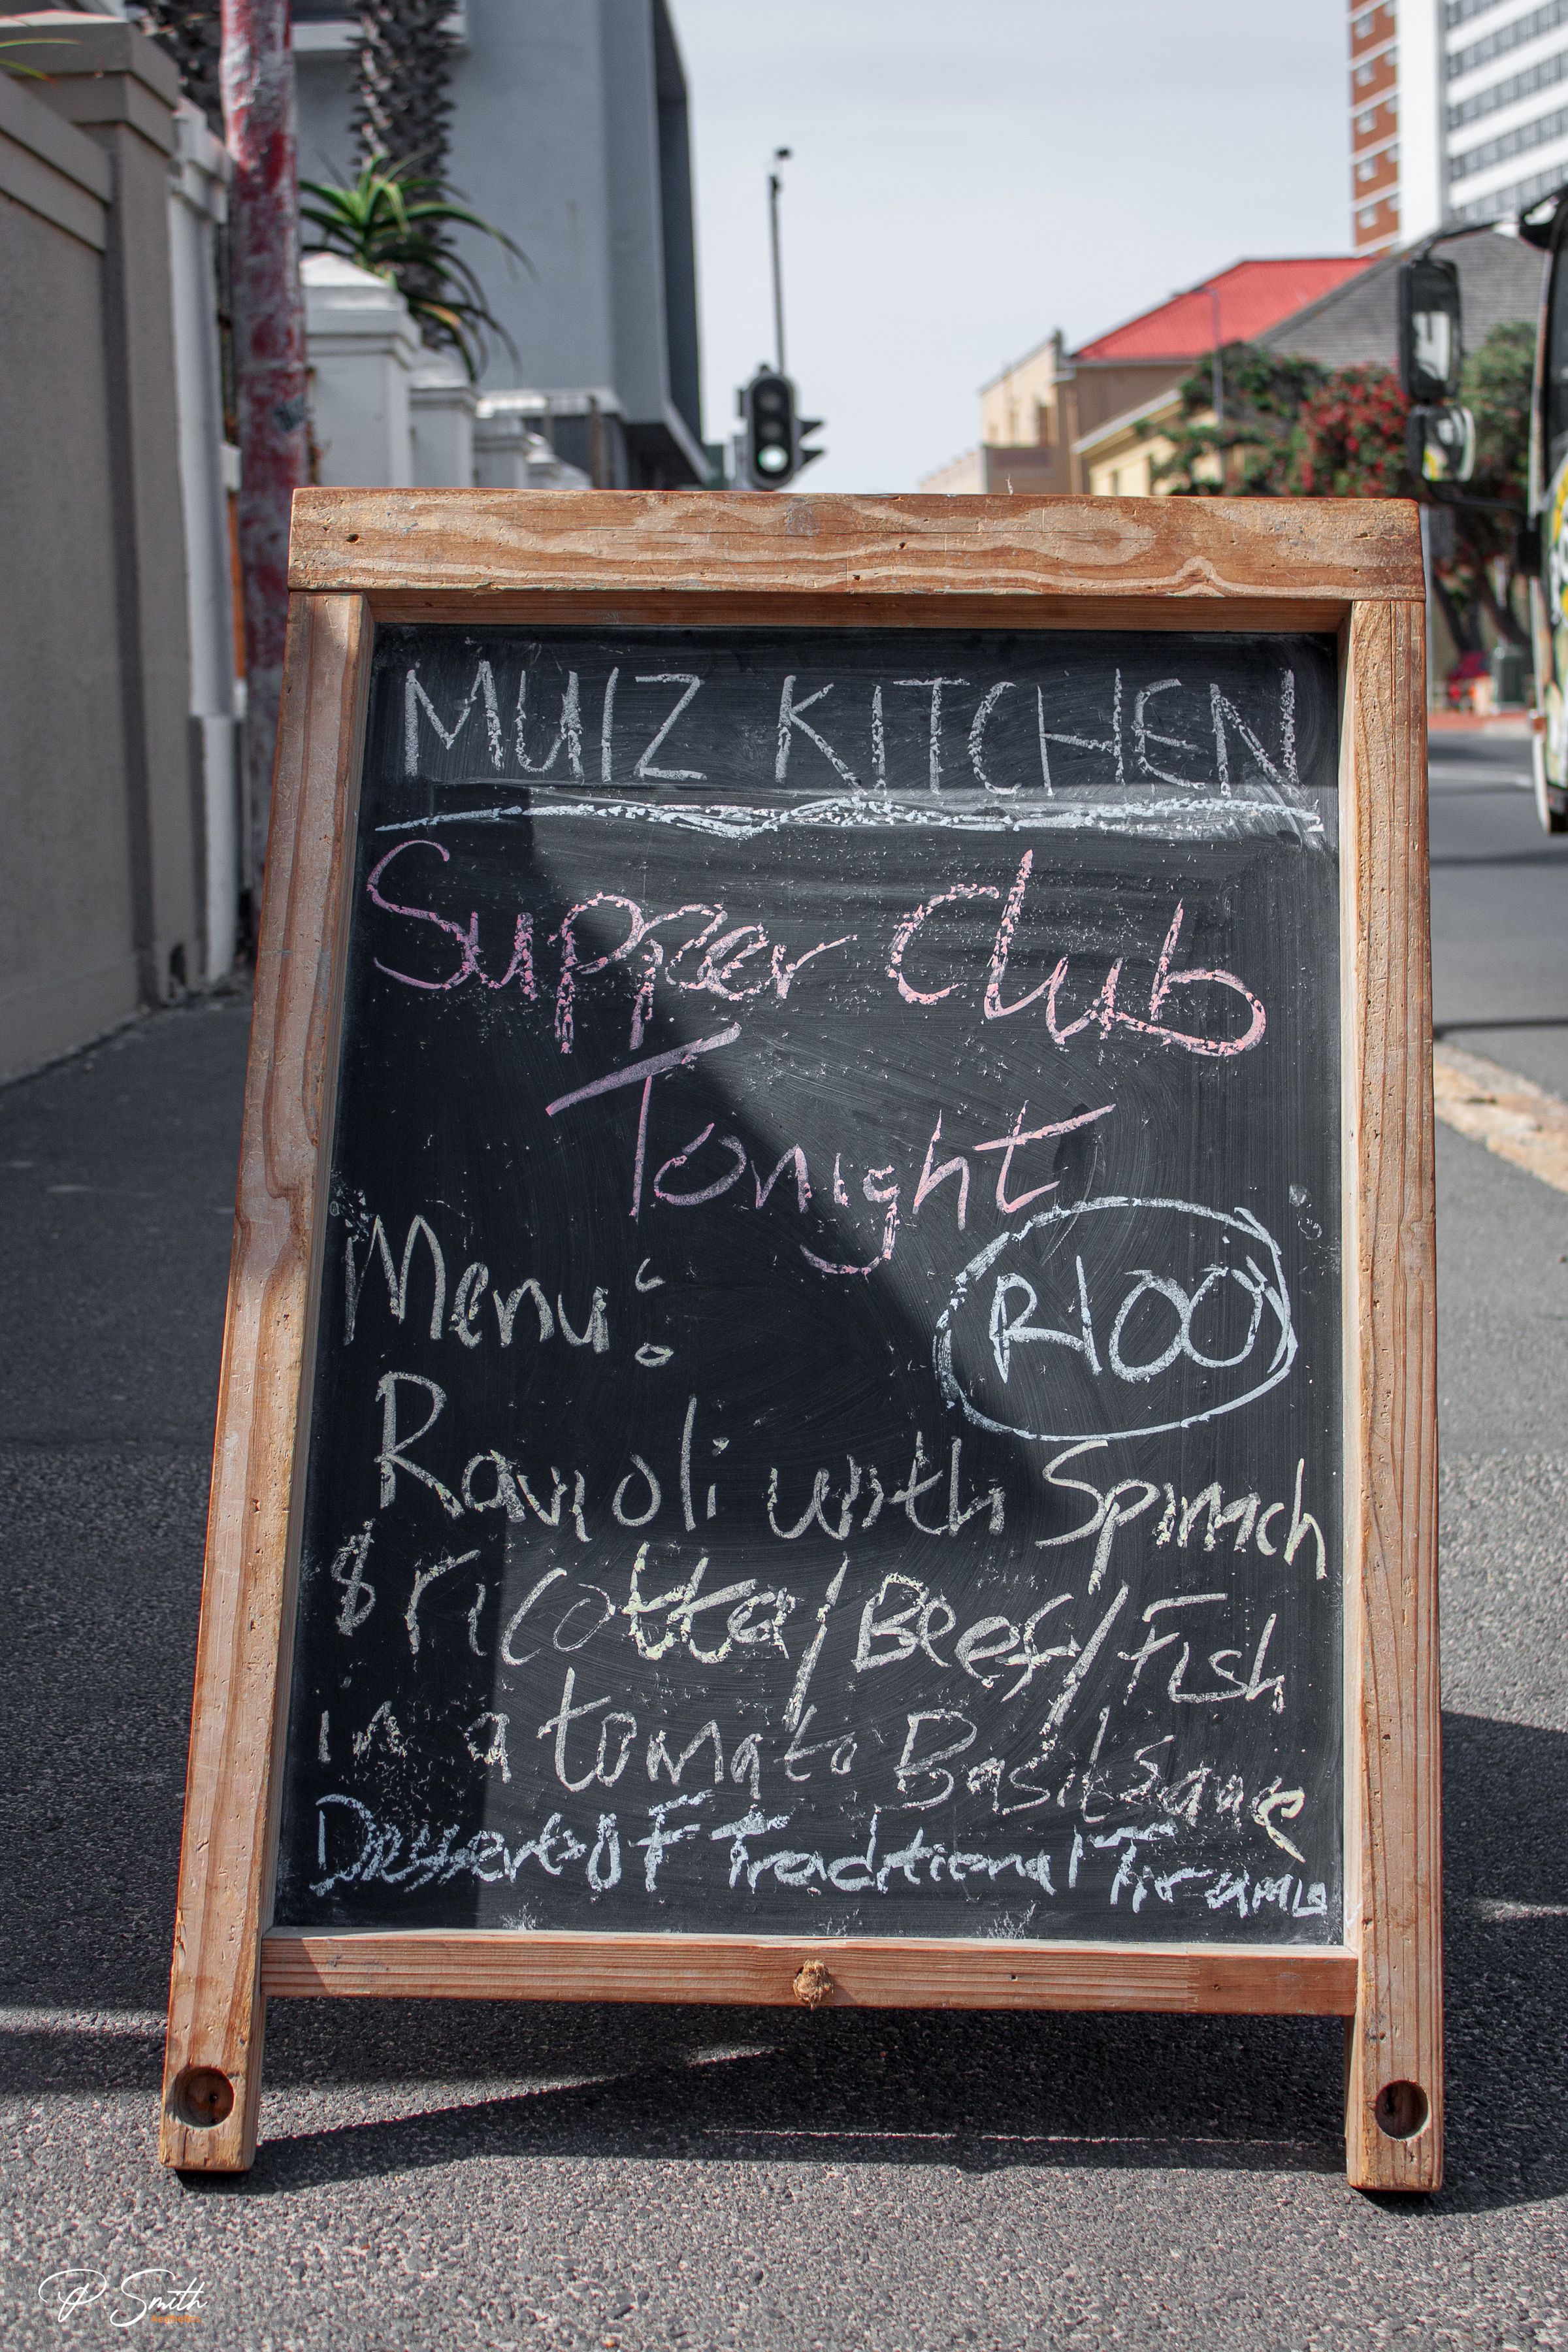 MUIZ KITCHEN
Supper Club
Tonight
Menu:
R100
Ravioli with Spinach
& ricotta / Beef / Fish
in a tomato Basil Sauce
Dessert of Traditional Tiramisu
P Smith